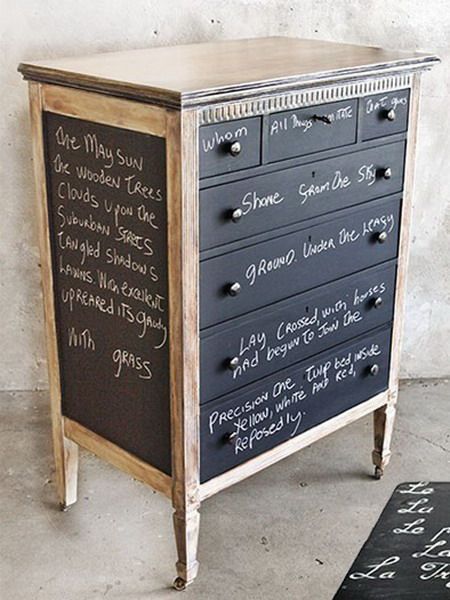 The MAY SUN
the wooden TREES
Clouds upon the
Suburban STREETS
tangled shadows
LAWNS. With excellent
upreared its gawdy
With GRASS
WHOM
All Things IMITATE
that guy
Shone from the Sky
GROUND. Under the leafy
LAY Crossed, with horses
HAD begun to JOIN the
PRECISION the TULIP bed inside
Yellow, white AND Red,
Reposedly.
Le
La
Le
La
La Tr